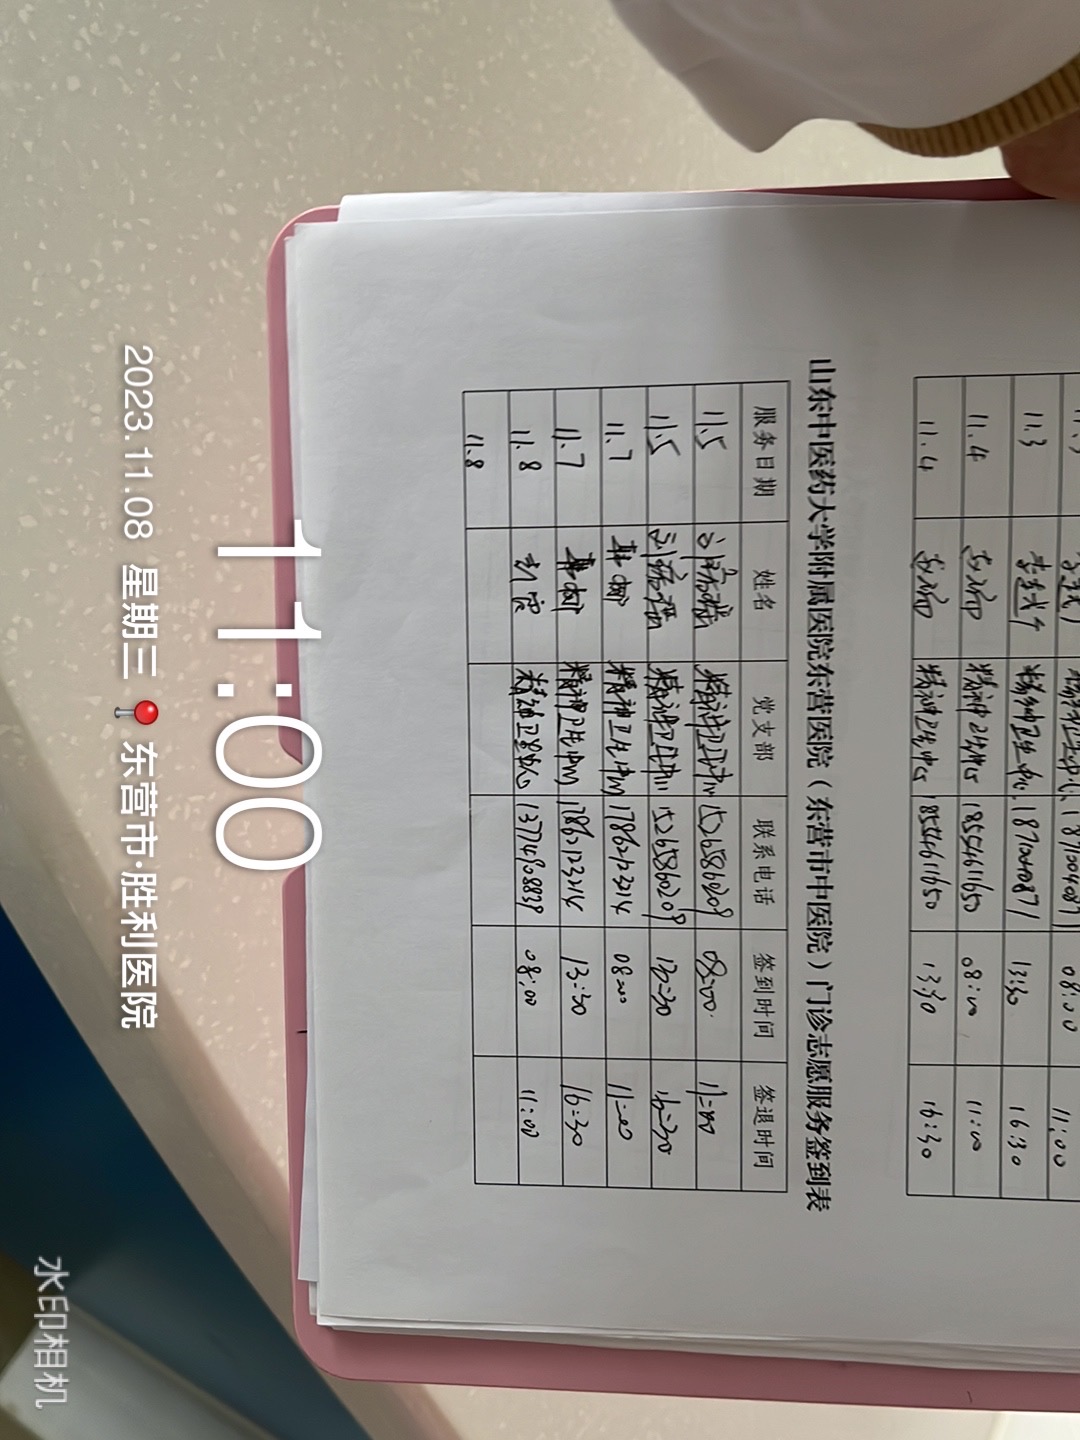 11.3 13:30 16:30
11.4 精神卫生中心 18554611650 08:00 11:00
11.4 精神卫生中心 18554611650 13:30 16:30
山东中医药大学附属医院东营医院（东营市中医院）门诊志愿服务签到表
服务日期 姓名 党支部 联系电话 签到时间 签退时间
11.5 精神卫生中心 15265860209 08:00 11:00
11.5 精神卫生中心 15265860209 13:30 16:30
11.7 韩树 精神卫生中心 17862123214 08:00 11:00
11.7 韩树 精神卫生中心 17862123214 13:30 16:30
11.8 精神卫生中心 08:00 11:00
11.8
11:00
2023.11.08 星期三 东营市·胜利医院
水印相机